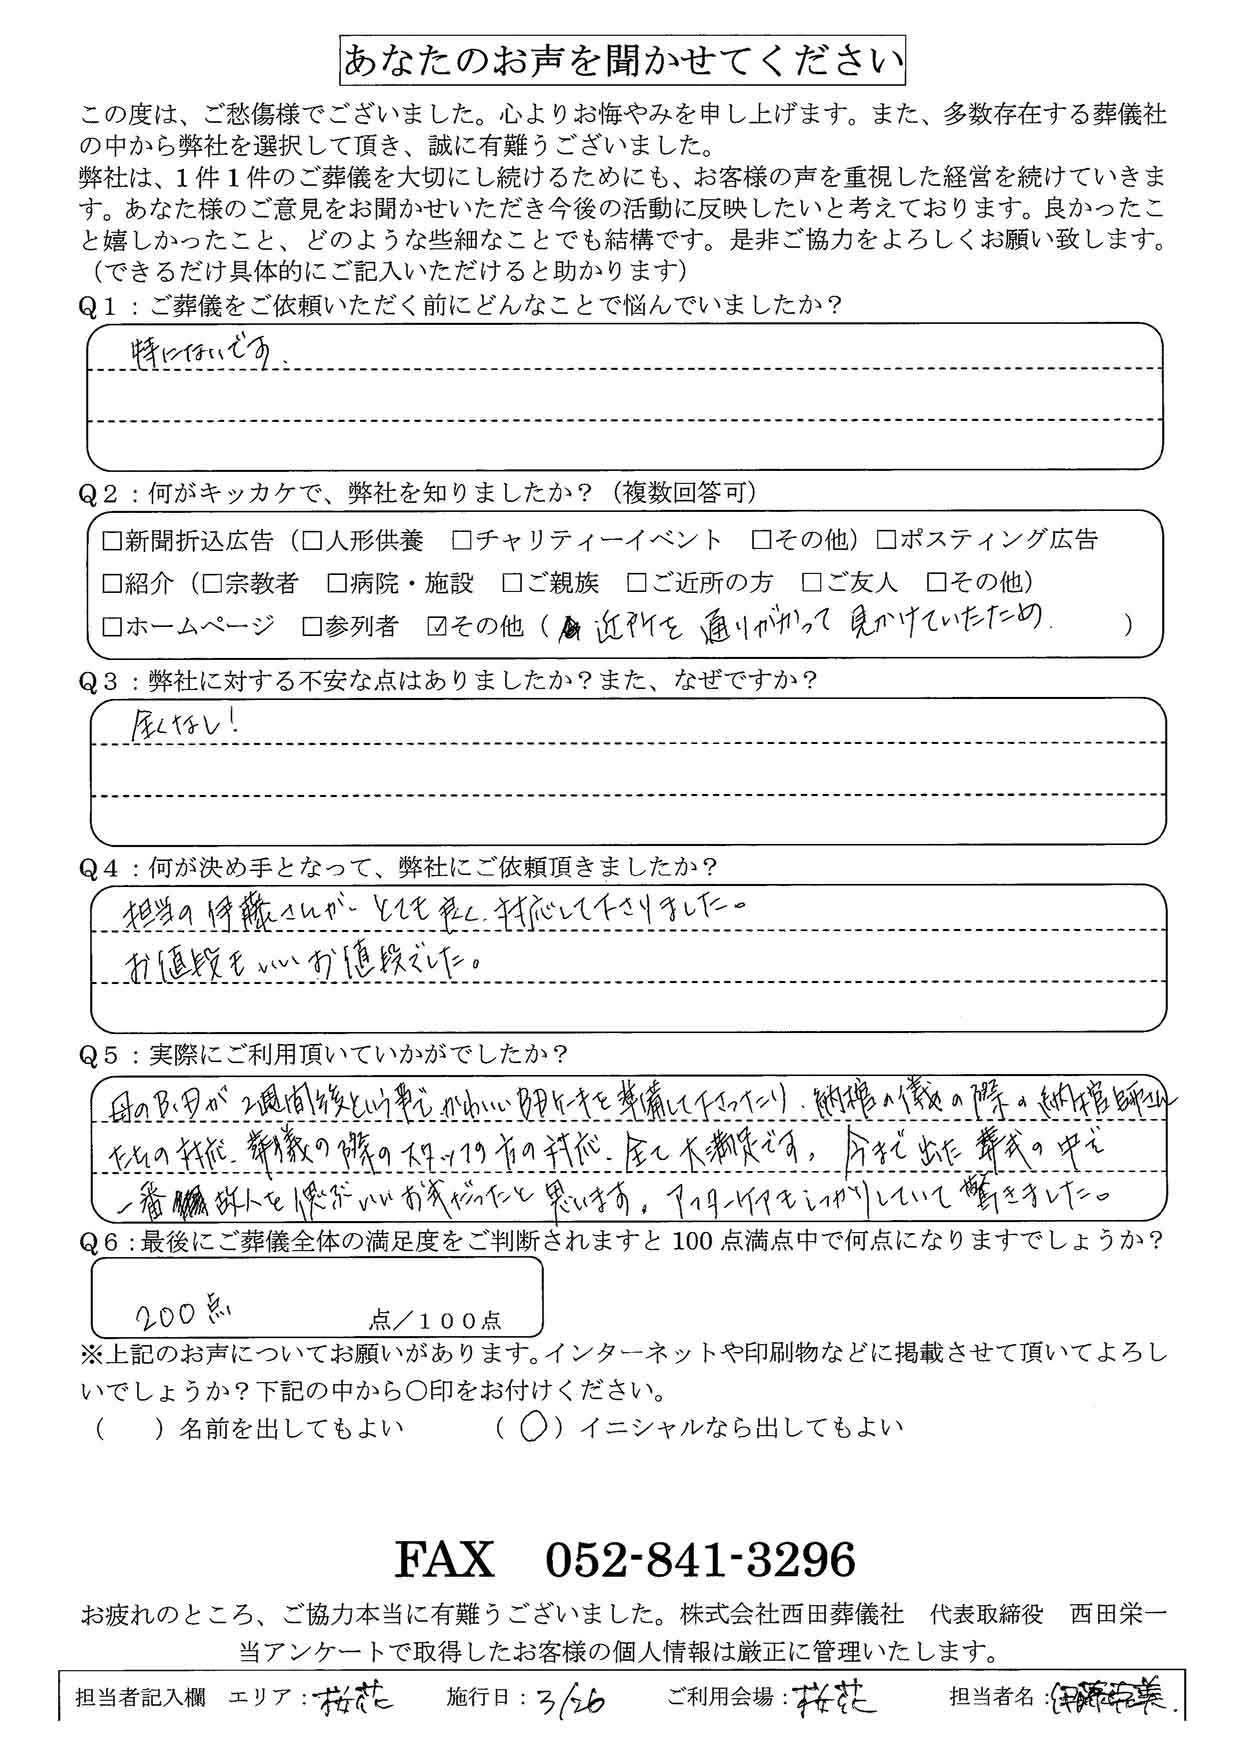 あなたのお声を聞かせてください
この度は、ご愁傷様でございました。心よりお悔やみを申し上げます。また、多数存在する葬儀社
の中から弊社を選択して頂き、誠に有難うございました。
弊社は、1件1件のご葬儀を大切にし続けるためにも、お客様の声を重視した経営を続けていきま
す。あなた様のご意見をお聞かせいただき今後の活動に反映したいと考えております。良かったこ
と嬉しかったこと、どのような些細なことでも結構です。是非ご協力をよろしくお願い致します。
（できるだけ具体的にご記入いただけると助かります）
Q1：ご葬儀をご依頼いただく前にどんなことで悩んでいましたか？
特にないです.
Q2：何がキッカケで、弊社を知りましたか？（複数回答可）
□新聞折込広告（□人形供養　□チャリティーイベント　□その他）□ポスティング広告
□紹介（□宗教者　□病院・施設　□ご親族　□ご近所の方　□ご友人　□その他）
□ホームページ　□参列者　☑その他（ 近所を通りがかって見かけていたため. ）
Q3：弊社に対する不安な点はありましたか？また、なぜですか？
全くなし!
Q4：何が決め手となって、弊社にご依頼頂きましたか？
担当の伊藤さんが、とても良く対応して下さりました。
お値段もいいお値段でした。
Q5：実際にご利用頂いていかがでしたか？
母のB.Dが2週間後という事で、かわいいBDケーキを準備して下さったり、納棺の儀の際の納棺師さん
たちの対応、葬儀の際のスタッフの方の対応、全て大満足です。今まで出た葬式の中で
一番 故人を偲ぶいいお式だったと思います。アフターケアもしっかりしていて驚きました。
Q6：最後にご葬儀全体の満足度をご判断されますと100点満点中で何点になりますでしょうか？
200点　点／100点
※上記のお声についてお願いがあります。インターネットや印刷物などに掲載させて頂いてよろし
いでしょうか？下記の中から○印をお付けください。
（　　）名前を出してもよい　　　（○）イニシャルなら出してもよい
FAX　052-841-3296
お疲れのところ、ご協力本当に有難うございました。株式会社西田葬儀社　代表取締役　西田栄一
当アンケートで取得したお客様の個人情報は厳正に管理いたします。
担当者記入欄　エリア：桜花　施行日：3/26　ご利用会場：桜花　担当者名：